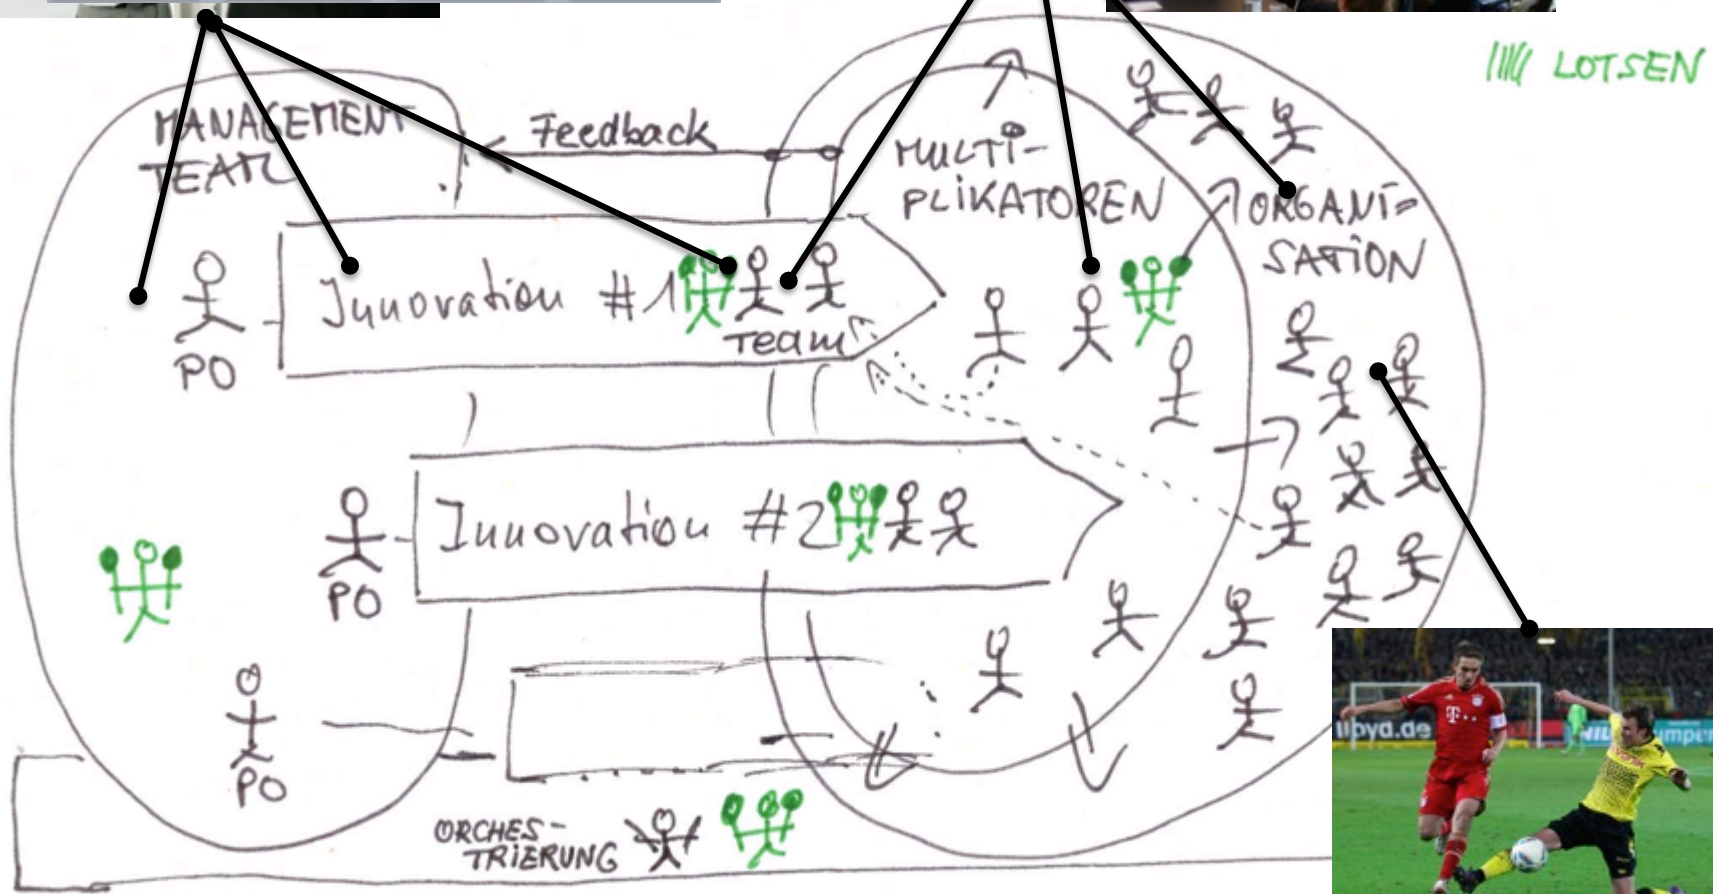 LOTSEN
MANAGEMENT
TEAM
Feedback
MULTI-
PLIKATOREN
ORGANI-
SATION
PO
Innovation #1
Team
PO
Innovation #2
PO
ORCHES-
TRIERUNG
lloyd.de
T